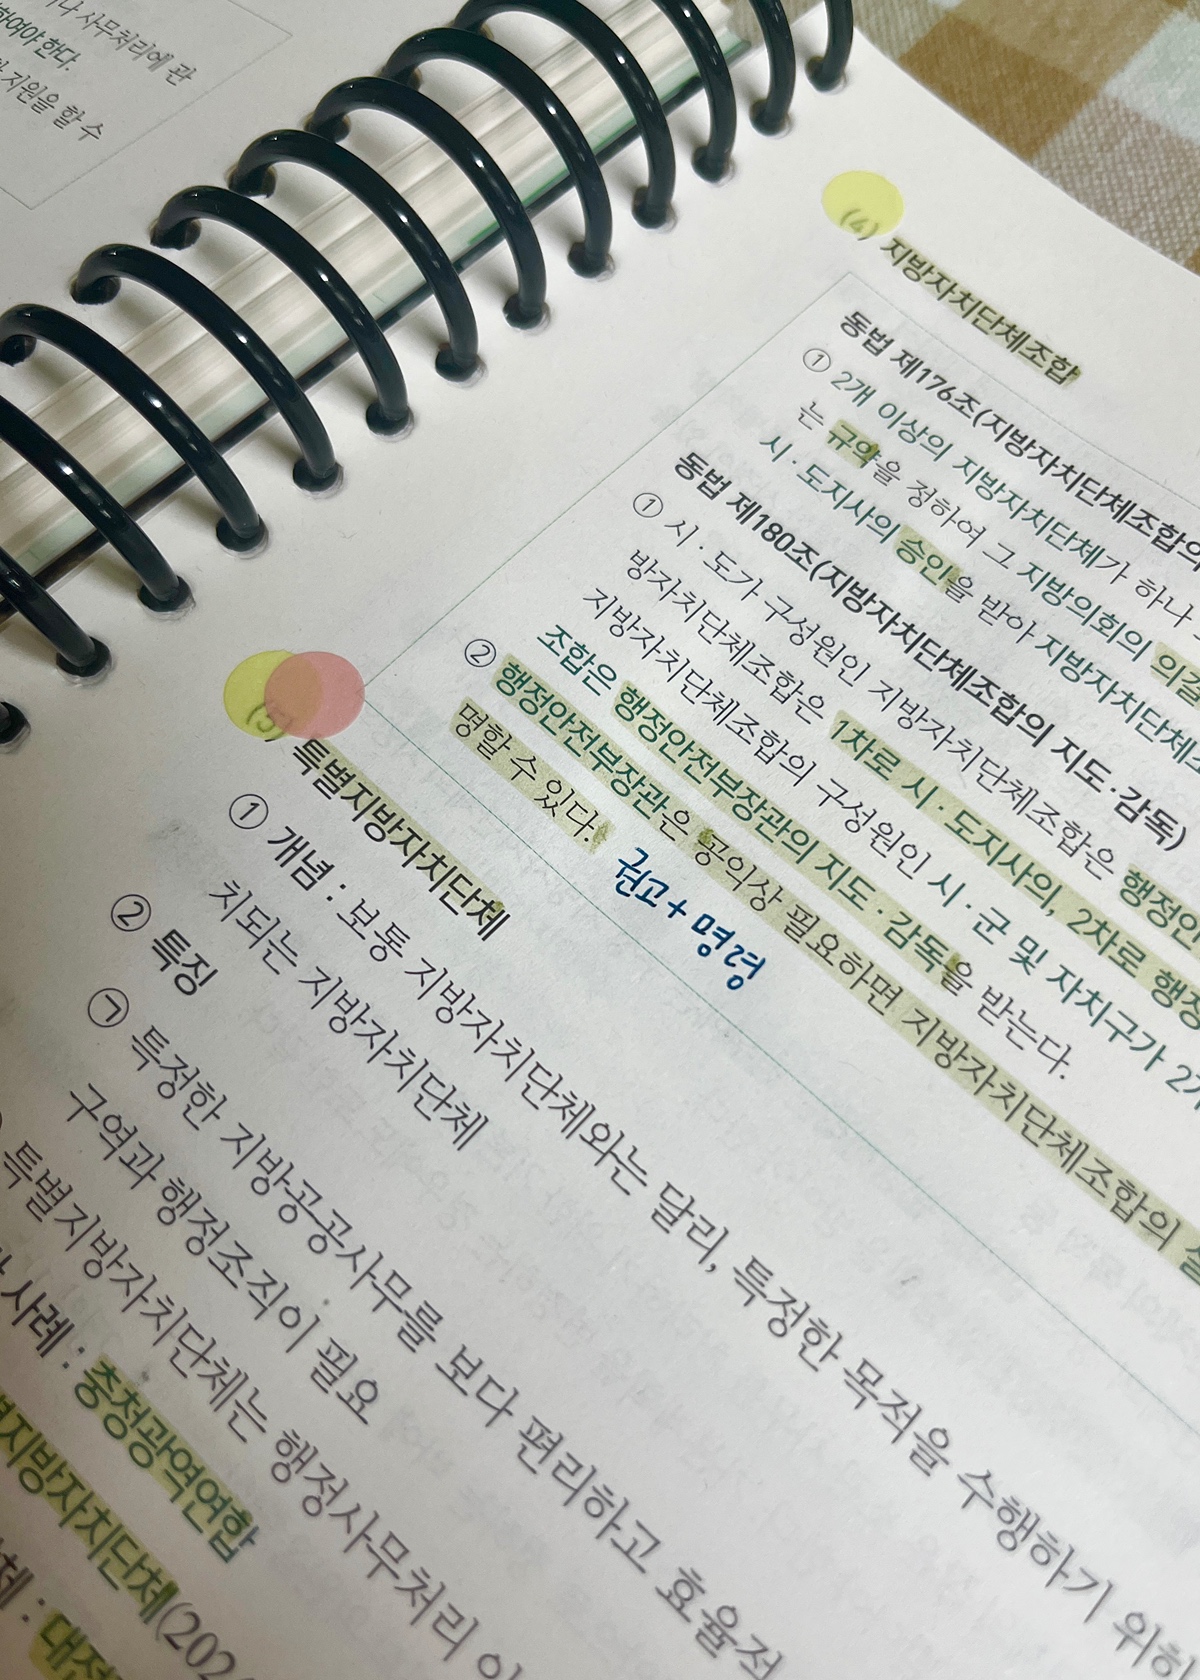 나 사무처리에 관
하여야 한다.
지원을 할 수
(4) 지방자치단체조합
동법 제176조(지방자치단체조합의
① 2개 이상의 지방자치단체가 하나
는 규약을 정하여 그 지방의회의 의결
시·도지사의 승인을 받아 지방자치단체조
동법 제180조(지방자치단체조합의 지도·감독)
① 시·도가 구성원인 지방자치단체조합은 행정안
방자치단체조합은 1차로 시·도지사의, 2차로 행정
지방자치단체조합의 구성원인 시·군 및 자치구가 2개
조합은 행정안전부장관의 지도·감독을 받는다.
② 행정안전부장관은 공익상 필요하면 지방자치단체조합의 설
명할 수 있다.
권고+명령
(5) 특별지방자치단체
① 개념 : 보통 지방자치단체와는 달리, 특정한 목적을 수행하기 위하
치되는 지방자치단체
② 특징
㉠ 특정한 지방공공사무를 보다 편리하고 효율적
구역과 행정조직이 필요
특별지방자치단체는 행정사무처리
사례 : 충청광역연합
지방자치단체(202
체 : 대전